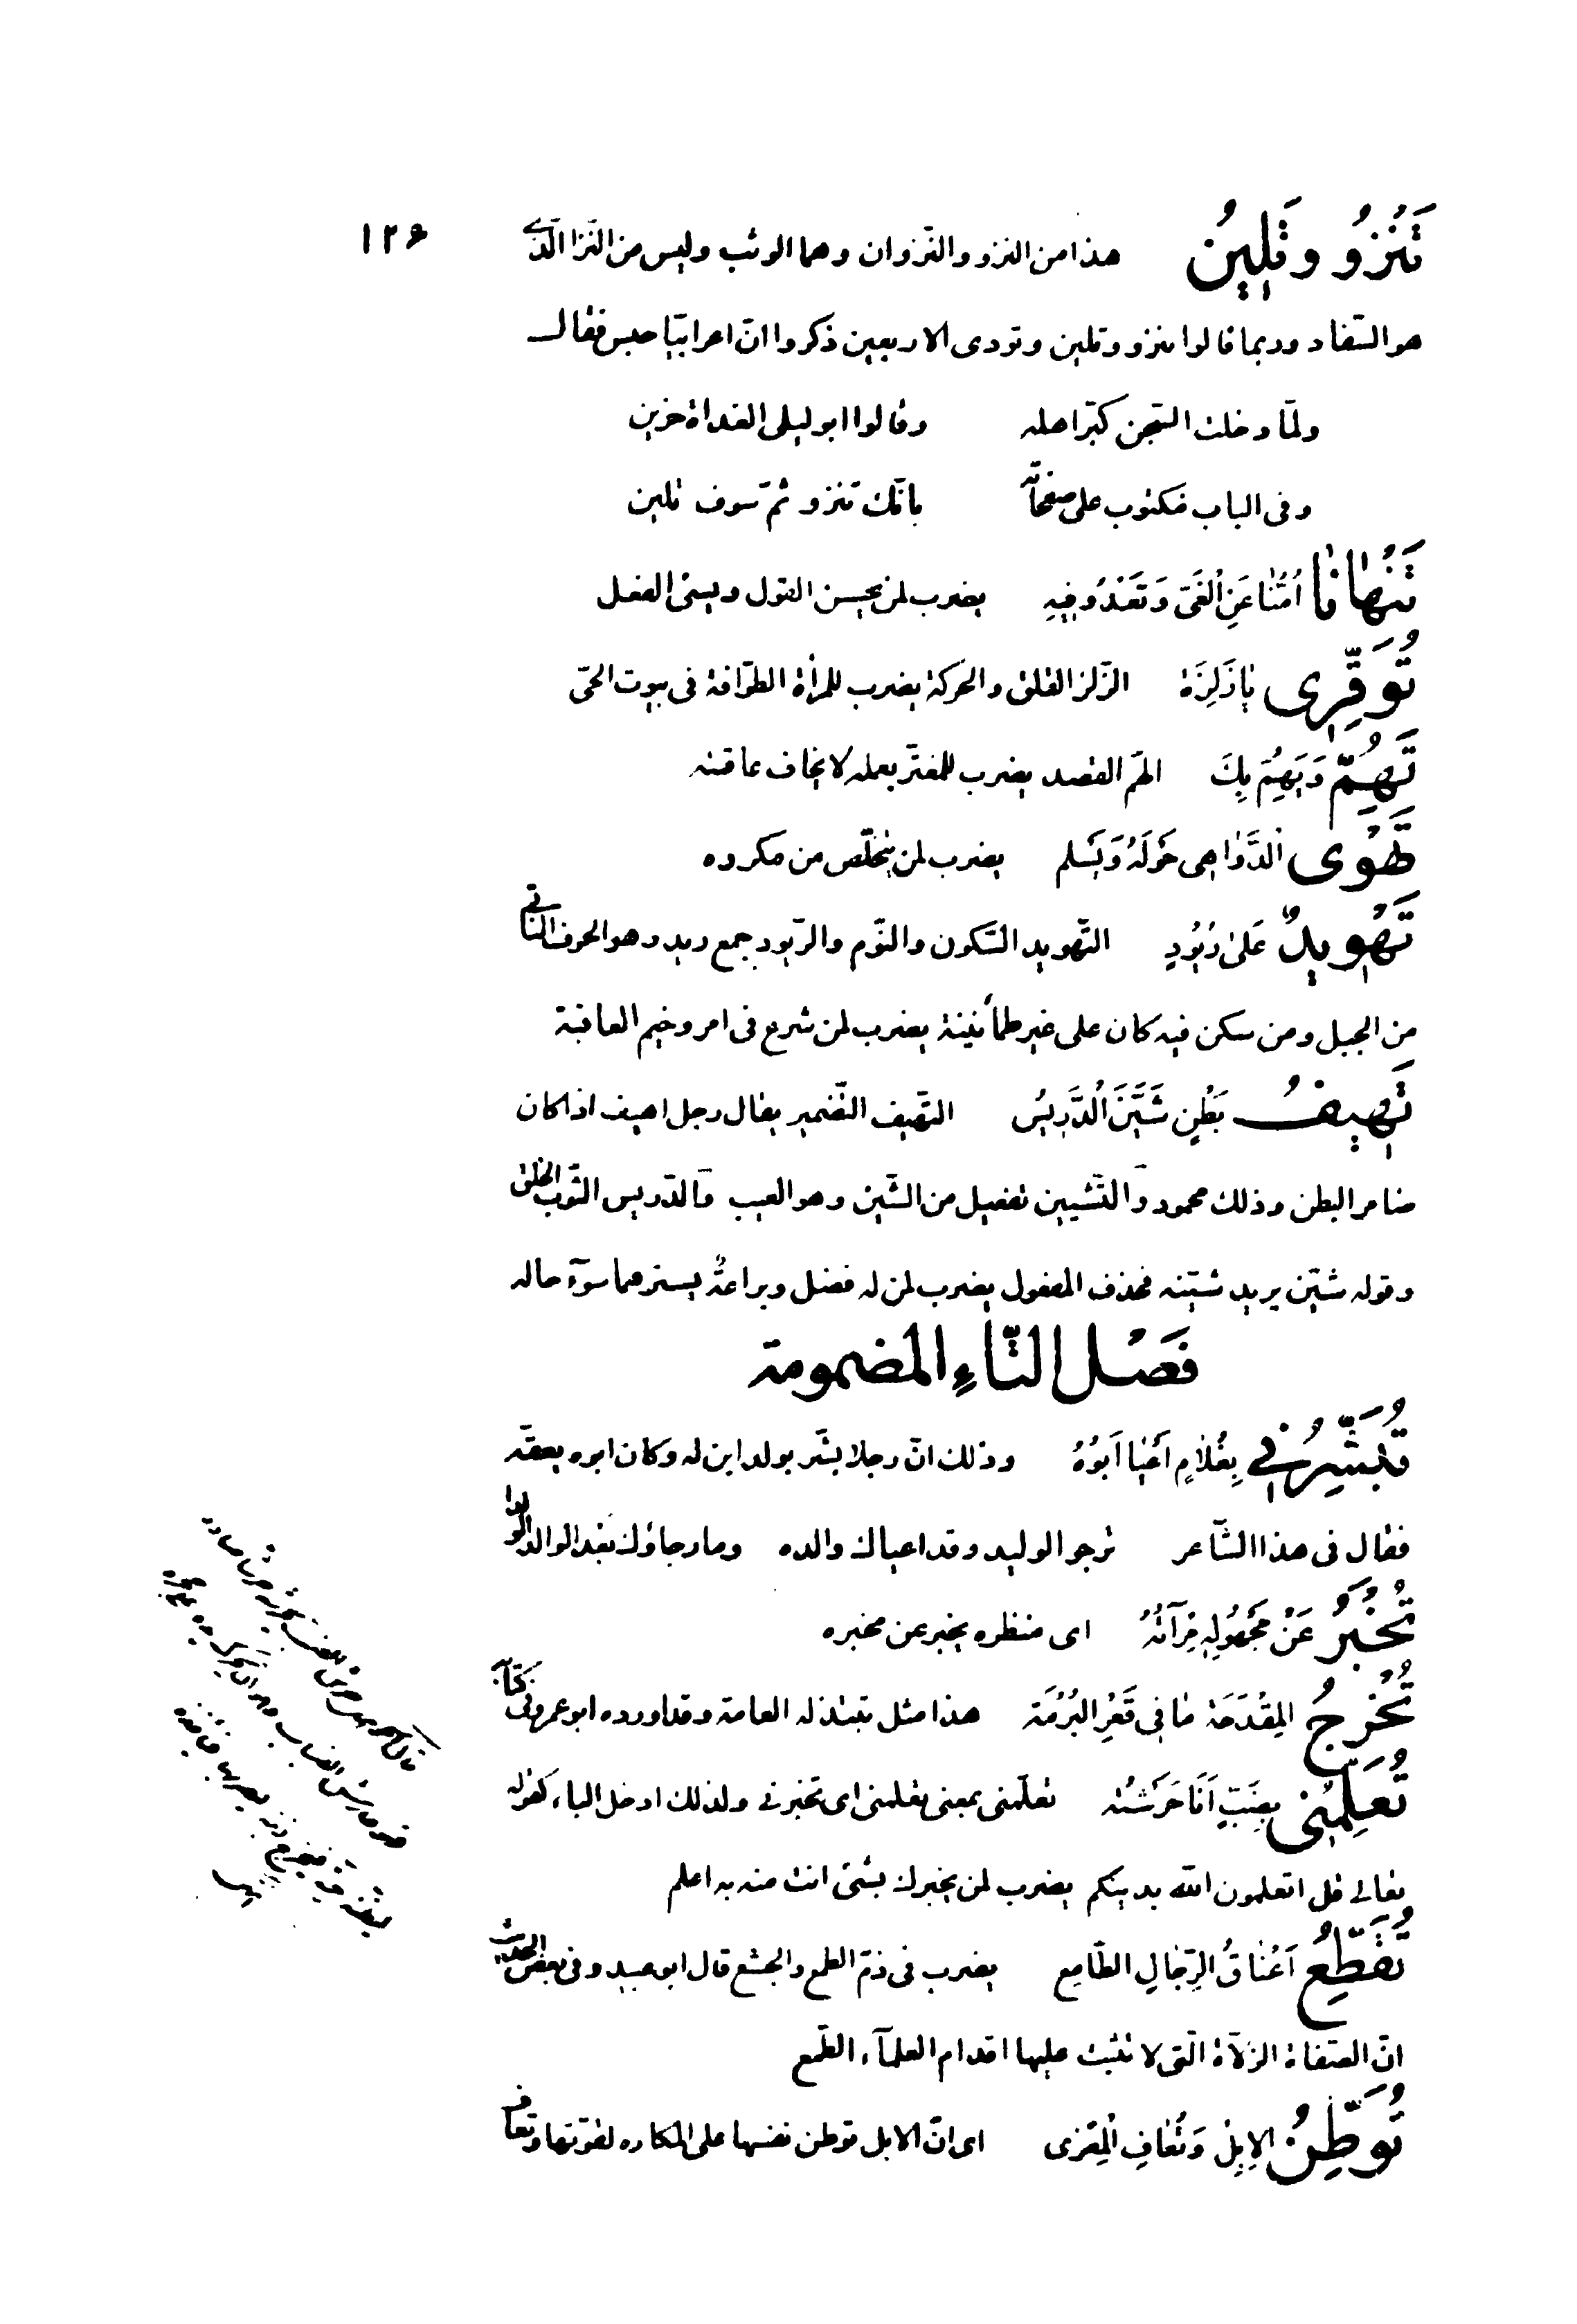 ۱۲۶
تَنْزُو وتَلِينُ هذا من النزو والنّزوان وهما الوثب وليس من النّزا الّذى
هو السّفاد وربما قالوا تنزو وتلين وتودى الاربعين ذكروا انّ اعرابيّا حبس فقال
ولمّا دخلت السّجن كبّر اهله وقالوا ابو ليلى الغداة حزين
وفى الباب مكتوب على صفحاته بانّك تنزو ثمّ سوف تلين
تَنْهانا اُمُّنا عَنِ الْغَىِّ وَتَغْدُو فِيهِ يضرب لمن يحسن القول ويسئ الفعل
تُوَقَّرِى يا زَلِزَةُ الزّلز القلق والحركة يضرب للمرأة الطوّافة فى بيوت الحىّ
تَهُمُّ وَيَهُمُّ بِكَ الهمّ القصد يضرب للمغترّ بعمله لا يخاف عاقبته
تَهْوِى الدَّواهِى حَوْلَهُ وَيَسْلَم يضرب لمن يتخلّص من مكروه
تَهْوِيدٌ عَلى رُيُودٍ التّهويد السّكون والنّوم والرّيود جمع ريد وهو الحرف النّاتى
من الجبل ومن سكن فيه كان على غير طمأنينة يضرب لمن شرع فى امر وخيم العاقبة
تَهْيِيفُ بَطْنٍ شَيَّنَ الدَّرِيسُ التّهييف التّضمير يقال رجل اهيف اذا كان
ضامر البطن وذلك محمود والتّشيين تفعيل من الشّين وهو العيب والدّريس الثّوب الخلق
وقوله شيّن يريد شيّنه فحذف المفعول يضرب لمن له فضل وبراعةٌ يسترهما سوٓء حاله
فَصْل التّاءِ المضمومة
تُبَشِّرُنِى بِغُلامٍ اَعْيا اَبُوهُ وذلك انّ رجلا بشّر بولد ابن له وكان ابوه يعقّه
فقال فى هذا الشّاعر ترجو الوليد وقد اعياك والده وما رجاؤك بعد الوالد الولدا
تُخْبِرُ عَنْ مَجْهُولِهِ مِرْآتُهُ اى منظره يخبر عن مخبره
تُخْرِجُ المِقْدَحَةُ ما فى قَعْرِ البُرْمَة هذا مثل تبتذله العامة وقد اورده ابو عمرو فى كتابه
تُعَلِّمُنِى بِضَبٍّ اَنَا حَرَشْتُه تعلّمنى بمعنى تعلمنى اى تخبرنى ولذلك ادخل الباء كقوله
تعالى قل اتعلمون الله بدينكم يضرب لمن يخبرك بشئ انت منه به اعلم
تُقَطِّعُ اَعْناقَ الرِّجالِ الطّامِع يضرب فى ذمّ الطمع والجشع قال ابو عبيد وفى بعض الحديث
انّ الصّفاة الزلاّء الّتى لا تثبت عليها اقدام العلمآء الطّمع
تُوَطَّنُ الاِبِلُ وَتُعافِ الْمِعْزى اى انّ الابل توطن نفسها على المكاره لقوّتها وتعاف